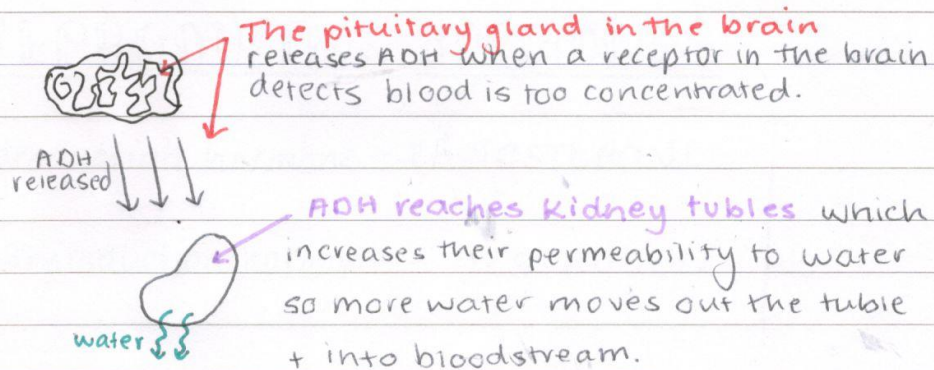 The pituitary gland in the brain
releases ADH when a receptor in the brain
detects blood is too concentrated.
ADH
released
ADH reaches kidney tubles which
increases their permeability to water
so more water moves out the tuble
+ into bloodstream.
water